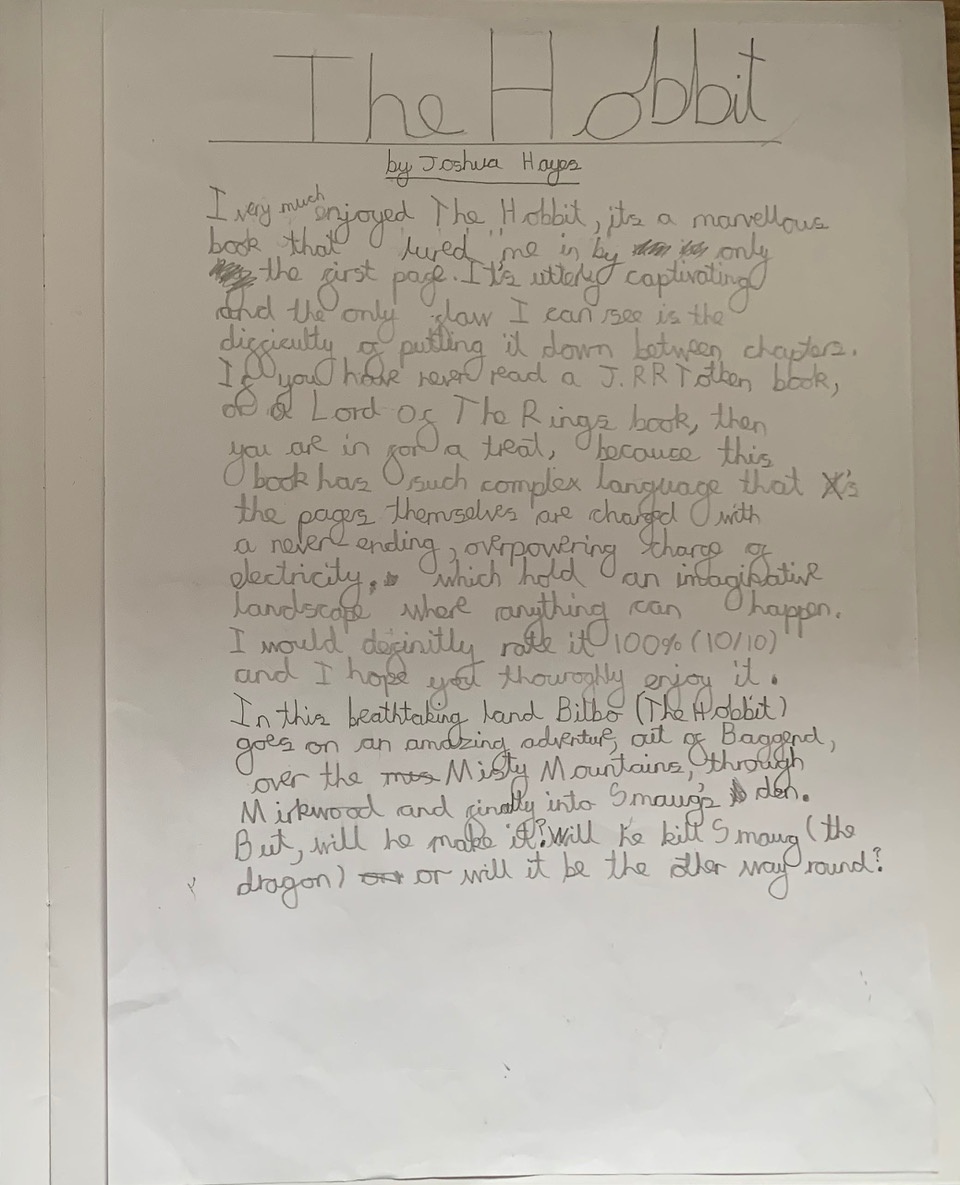 The Hobbit
by Joshua Hayes
I very much enjoyed The Hobbit, its a marvellous
book that lured me in by only
the first page. It's utterly captivating
and the only flaw I can see is the
difficulty of putting it down between chapters.
If you have never read a J.RR Tolken book,
or a Lord Of The Rings book, then
you are in for a treat, because this
book has such complex language that
the pages themselves are charged with
a never-ending, overpowering charge of
electricity, which hold an imaginative
landscape where anything can happen.
I would definitly rate it 100% (10/10)
and I hope you thouroghly enjoy it.
In this beathtaking land Bilbo (The Hobbit)
goes on an amazing adventure, out of Baggend,
over the Misty Mountains, through
Mirkwood and finally into Smaug's den.
But, will he make it? Will he kill Smaug (the
dragon) or will it be the other way round?